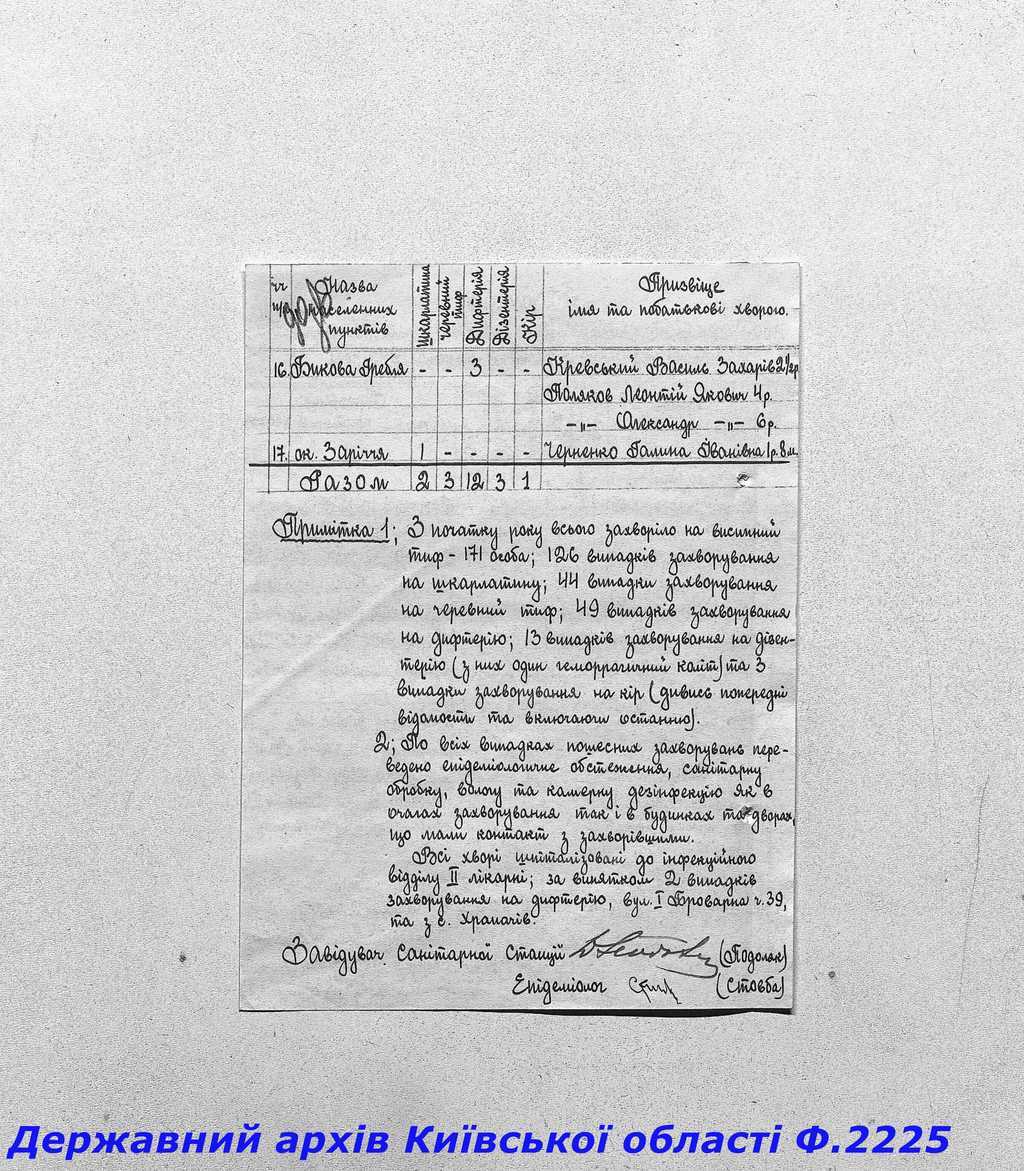 чч п/п Назва населенних пунктів Шкарлатина Черевний тиф Дифтерія Дізентерія Кір Призвіще імя та побаткові хворого.
16. Бикова Гребля - - 3 - - Кревський Василь Захарів 2 1/2 р
Поляков Леонтій Якович 4 р.
-„- Олександр -„- 6 р.
17. ок. Заріччя 1 - - - - Черненко Галина Іванівна 1 р. 8 м.
Разом 2 3 12 3 1
Примітка 1; З початку року всього захворіло на висипний
тиф - 171 особа; 126 випадків захворування
на шкарлатину; 44 випадки захворування
на черевний тиф; 49 випадків захворування
на дифтерію; 13 випадків захворування на дізен-
терію (з них один геморрагичний коліт) та 3
випадки захворування на кір (дивись попередні
відомости та включаючи останню).
2; По всіх випадках пошесних захворувань пере-
ведено епідеміологичне обстеження, санітарну
обробку, вологу та камерну дезінфекцію як в
очагах захворування так і в будинках та дворах,
що мали контакт з захворівшими.
Всі хворі шпиталізовані до інфекційного
відділу II лікарні; за винятком 2 випадків
захворування на дифтерію, вул. I Броварна ч. 39,
та з с. Храпачів.
Завідувач санітарної станції (Подоляк)
Епідеміолог (Стовба)
Державний архів Київської області Ф.2225